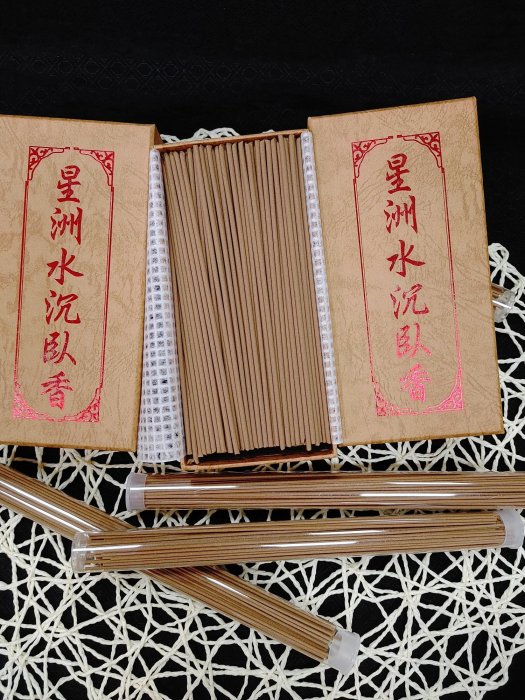 星洲水沉臥香
星洲水沉臥香